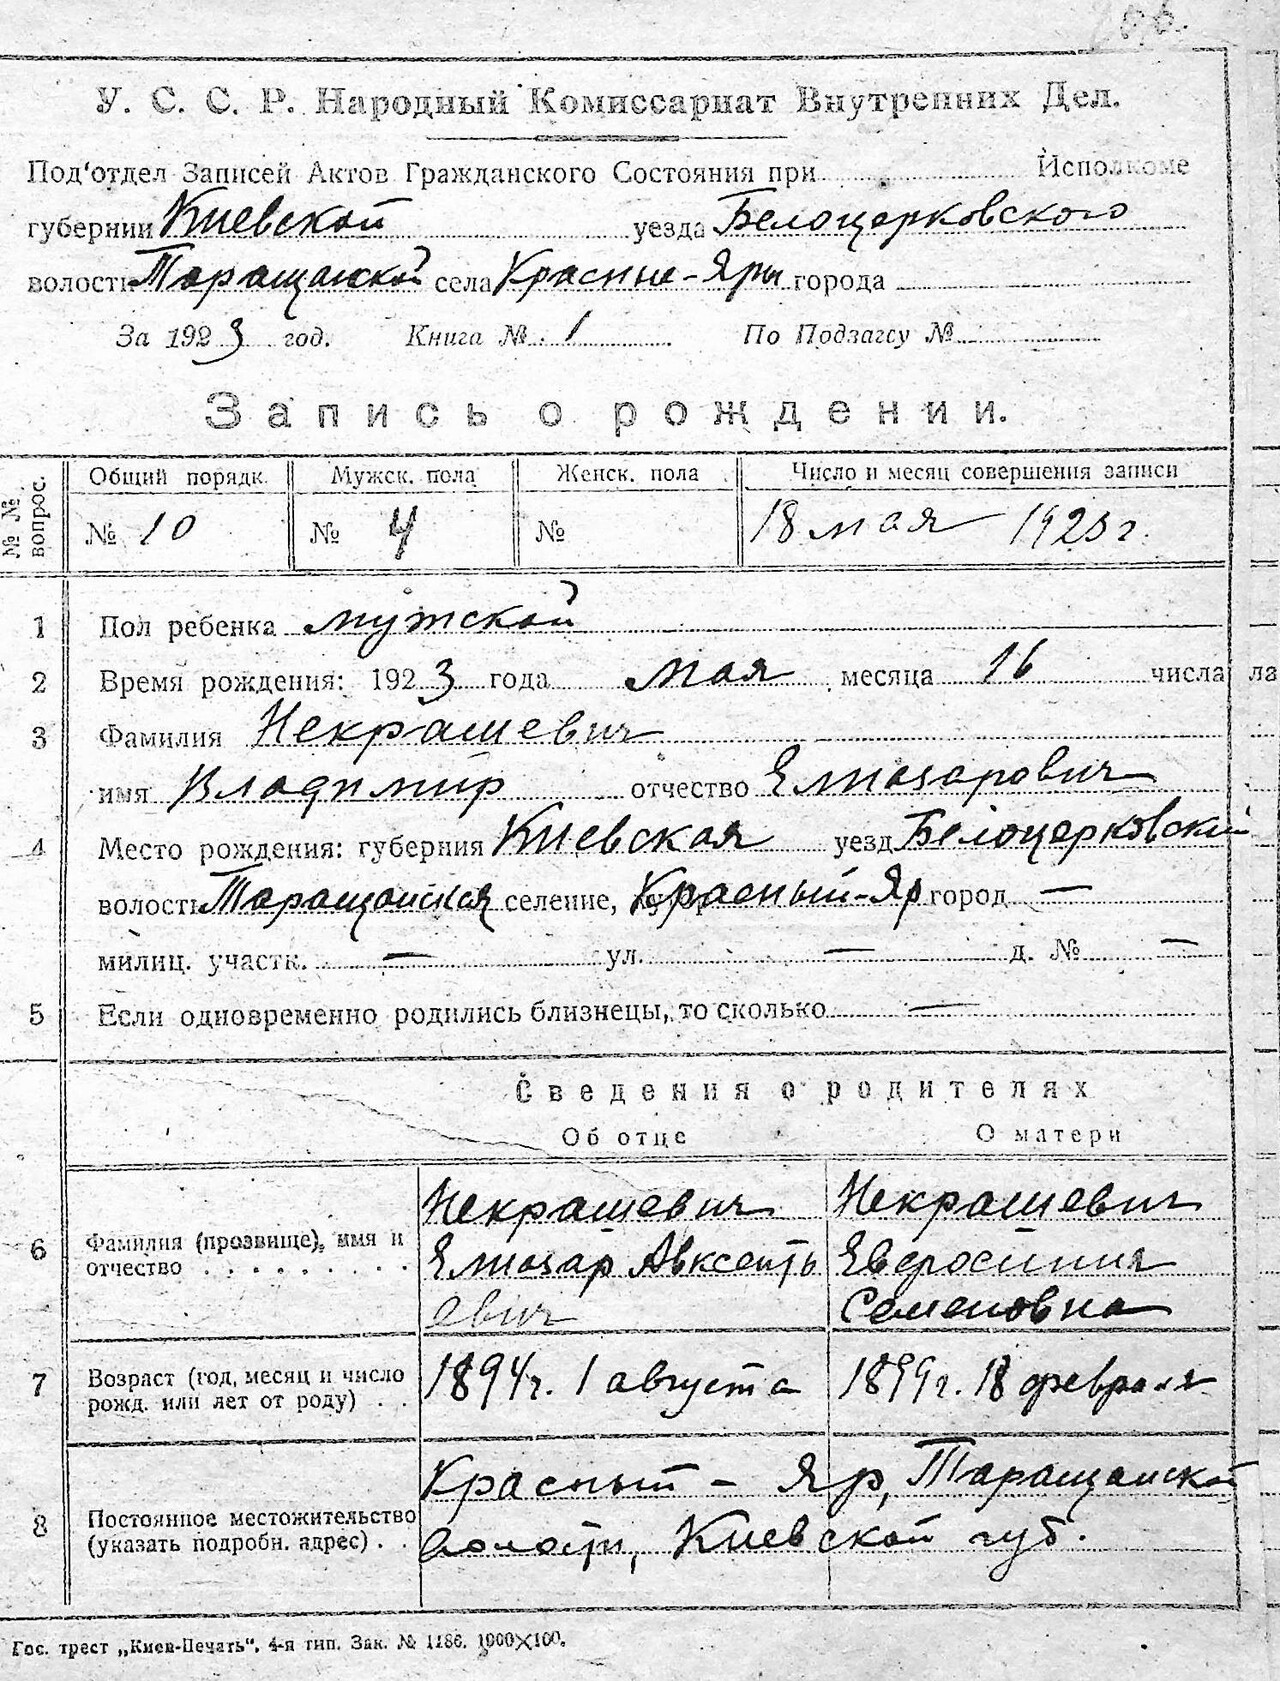 У. С. С. Р. Народный Комиссариат Внутренних Дел.
Под'отдел Записей Актов Гражданского Состояния при Исполкоме
губернии Киевской уезда Белоцерковского
волости Таращанской села Красные-Яры города
За 1923 год. Книга № 1 По Подзагсу №
Запись о рождении.
№ № вопрос. Общий порядк. Мужск. пола Женск. пола Число и месяц совершения записи
№ 10 № 4 № 18 мая 1923 г.
1 Пол ребенка мужской
2 Время рождения: 1923 года мая месяца 16 числа ла
3 Фамилия Некрашевич
имя Владимир отчество Елиозарович
4 Место рождения: губерния Киевская уезд Белоцерковский
волость Таращанская селение, Красный-Яр город —
милиц. участк. — ул. — д. № —
5 Если одновременно родились близнецы, то сколько —
Сведения о родителях
Об отце О матери
6 Фамилия (прозвище), имя и отчество . . . . . . . . .
Некрашевич Елиозар Авксентьевич
Некрашевич Евросиния Семеновна
7 Возраст (год, месяц и число рожд. или лет от роду) . .
1894 г. 1 августа 1899 г. 18 февраля
8 Постоянное местожительство (указать подробн. адрес) . .
Красный - Яр, Таращанской
волости, Киевской губ.
Гос. трест „Киев-Печать", 4-я тип. Зак. № 1186. 1000×100.